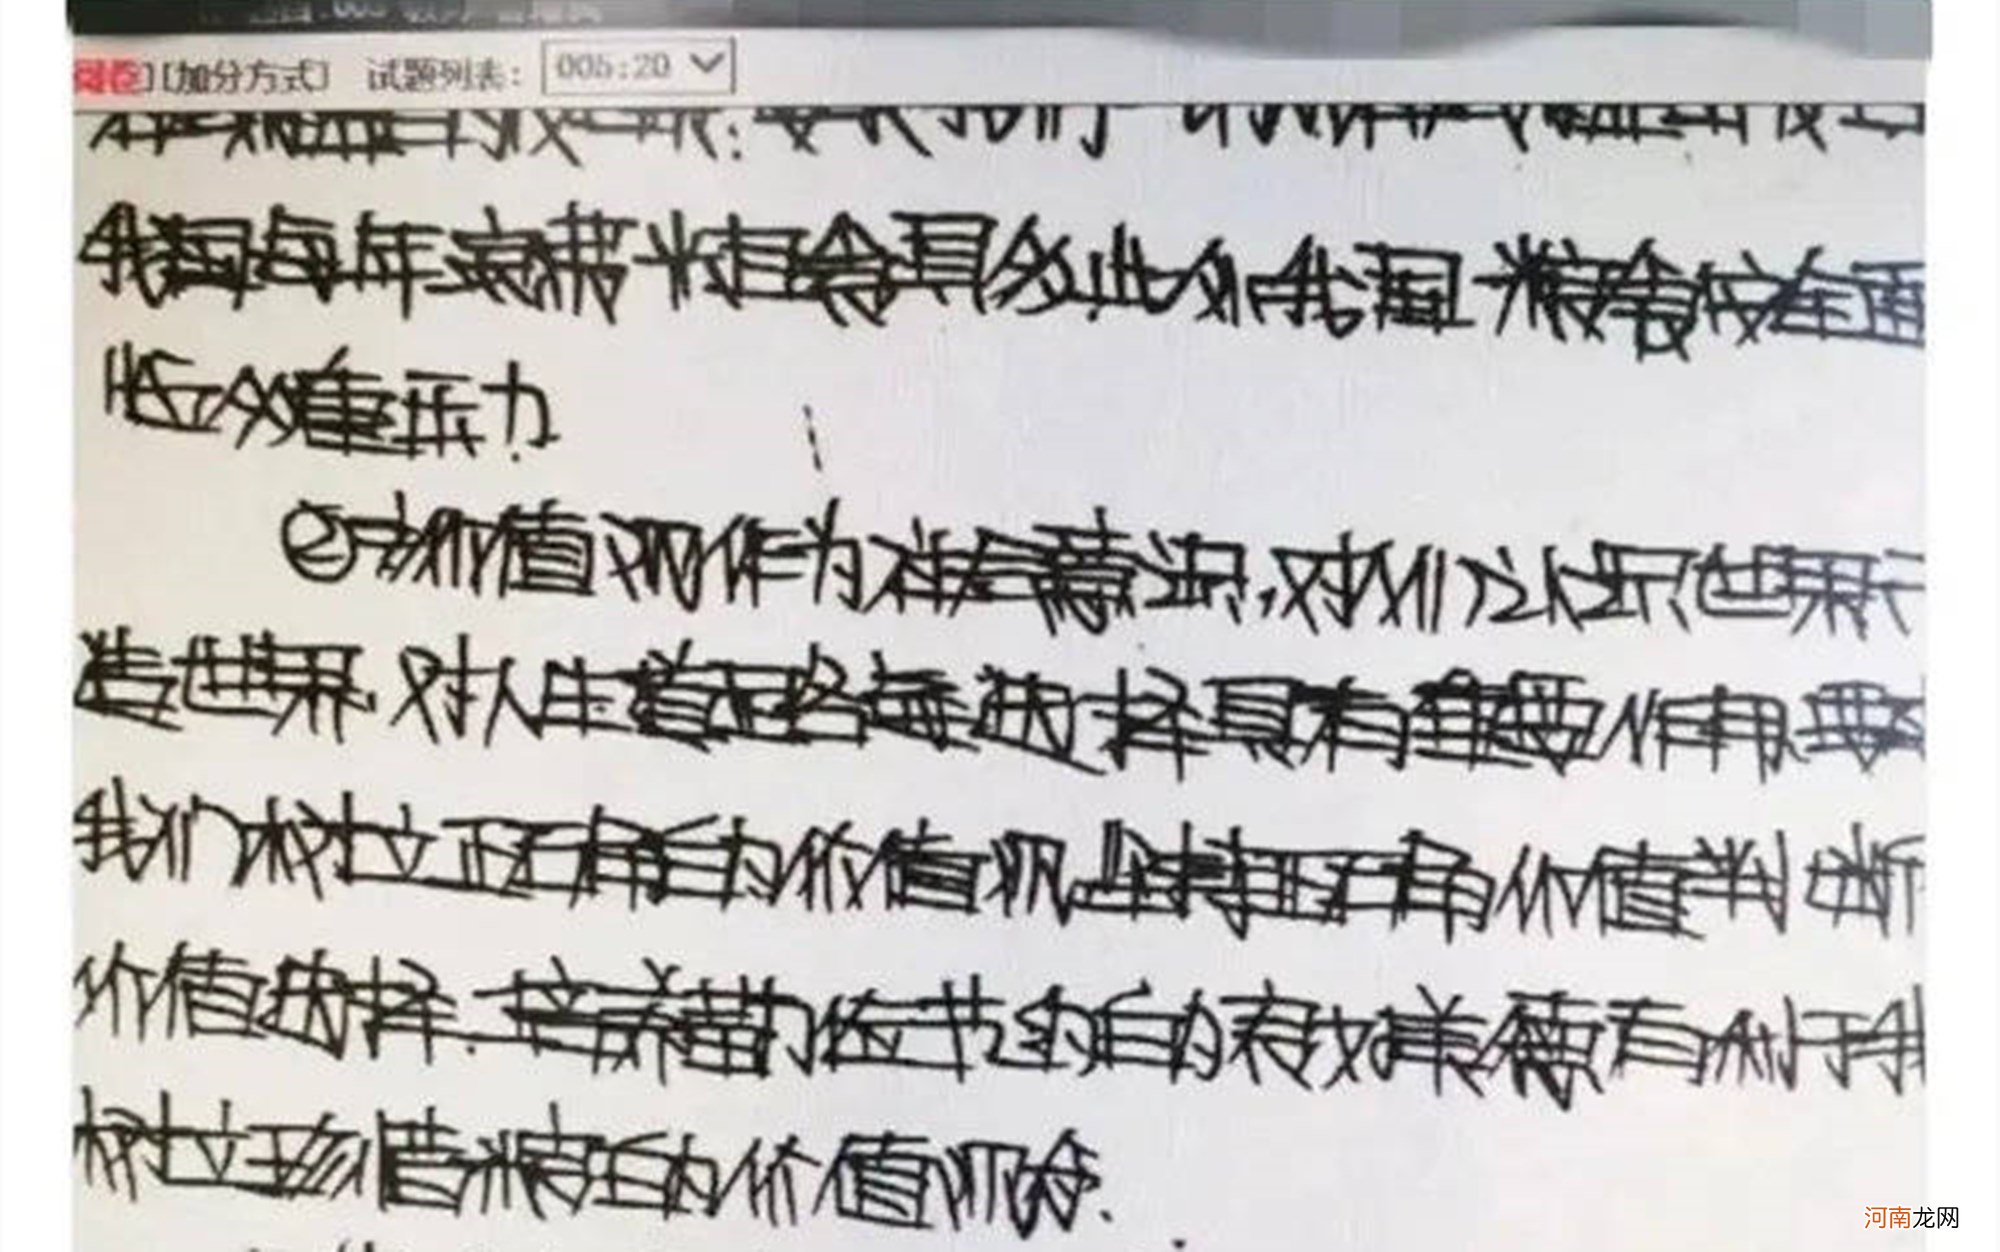 阅卷][加分方式] 试题列表: 005:20
我国每年浪费粮食具多,此外我国粮食安全面
重压力.
②价值观作为社会意识,对人们认识世界
造世界,对人生道路每选择具有重要作用,要
我们树立正确的价值观,坚持正确价值判断
价值选择.培养勤俭节约的良好美德有利于我
树立珍惜粮食的价值观念.
河南龙网